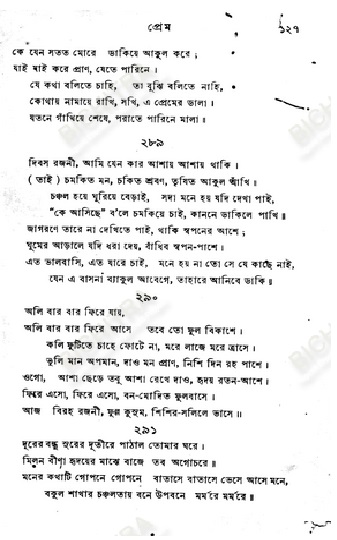 প্রেম
১২৭
কে যেন সতত মোরে ডাকিয়ে আকুল করে ;
যাই যাই করে প্রাণ, যেতে পারিনে।
যে কথা বলিতে চাহি, তা বুঝি বলিতে নাহি,
কোথায় নামায়ে রাখি, সখি, এ প্রেমের ডালা।
যতনে গাঁথিয়ে শেষে, পরাতে পারিনে মালা।
২৮৯
দিবস রজনী, আমি যেন কার আশায় আশায় থাকি।
( তাই ) চমকিত মন, চকিত শ্রবণ, তৃষিত আকুল আঁখি॥
চঞ্চল হয়ে ঘুরিয়ে বেড়াই, সদা মনে হয় যদি দেখা পাই,
“কে আসিছে” ব'লে চমকিয়ে চাই, কাননে ডাকিলে পাখি॥
জাগরণে তারে না দেখিতে পাই, থাকি স্বপনের আশে ;
ঘুমের আড়ালে যদি ধরা দেয়, বাঁধিব স্বপন-পাশে।
এত ভালবাসি, এত যারে চাই, মনে হয় না তো সে যে কাছে নাই,
যেন এ বাসনা ব্যাকুল আবেগে, তাহারে আনিবে ডাকি॥
২৯০
অলি বার বার ফিরে যায়,
অলি বার বার ফিরে আসে তবে তো ফুল বিকাশে।
কলি ফুটিতে চাহে ফোটে না, মরে লাজে মরে ত্রাসে।
ভুলি মান অপমান, দাও মন প্রাণ, নিশি দিন রহ পাশে।
ওগো, আশা ছেড়ে তবু আশা রেখে দাও, হৃদয় রতন-আশে।
ফিরে এসো, ফিরে এসো, বন-মোদিত ফুলবাসে।
আজ বিরহ রজনী, ফুল্ল কুসুম, শিশির-সলিলে ভাসে॥
২৯১
দূরের বন্ধু সুরের দূতীরে পাঠাল তোমার ঘরে।
মিলন বীণা হৃদয়ের মাঝে বাজে তব অগোচরে॥
মনের কথাটি গোপনে গোপনে বাতাসে বাতাসে ভেসে আসে মনে,
বকুল শাখার চঞ্চলতায় বনে উপবনে মর্মরে মর্মরে॥